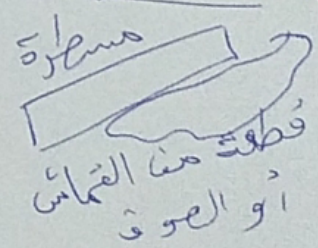 مسطرة
قطعة من القماش
أو الصوف